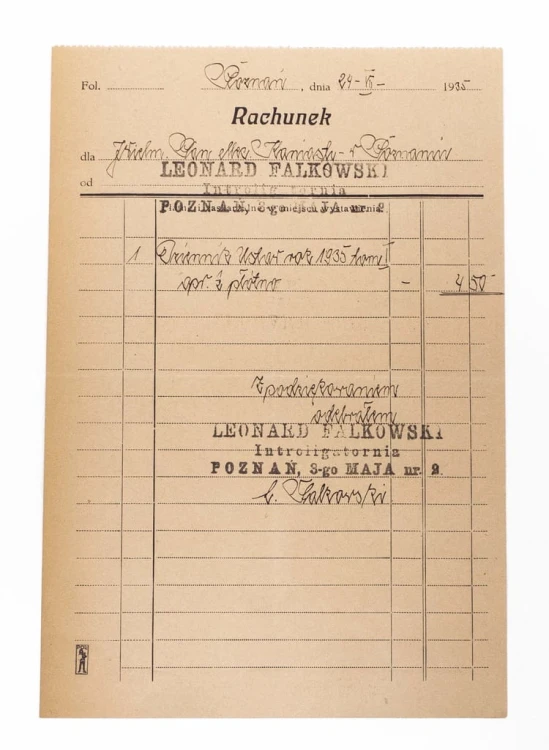 Fol. Poznań, dnia 24-VII- 1935
Rachunek
dla Pan w Poznaniu
LEONARD FALKOWSKI
od
Introligatornia
POZNAŃ, 3-go MAJA nr. 2
1 Dziennik Ustaw rok 1935 tom I
opr. z płótno - 4 50
Z podziękowaniem
odebrałem
LEONARD FALKOWSKI
Introligatornia
POZNAŃ, 3-go MAJA nr. 2.
L. Falkowski